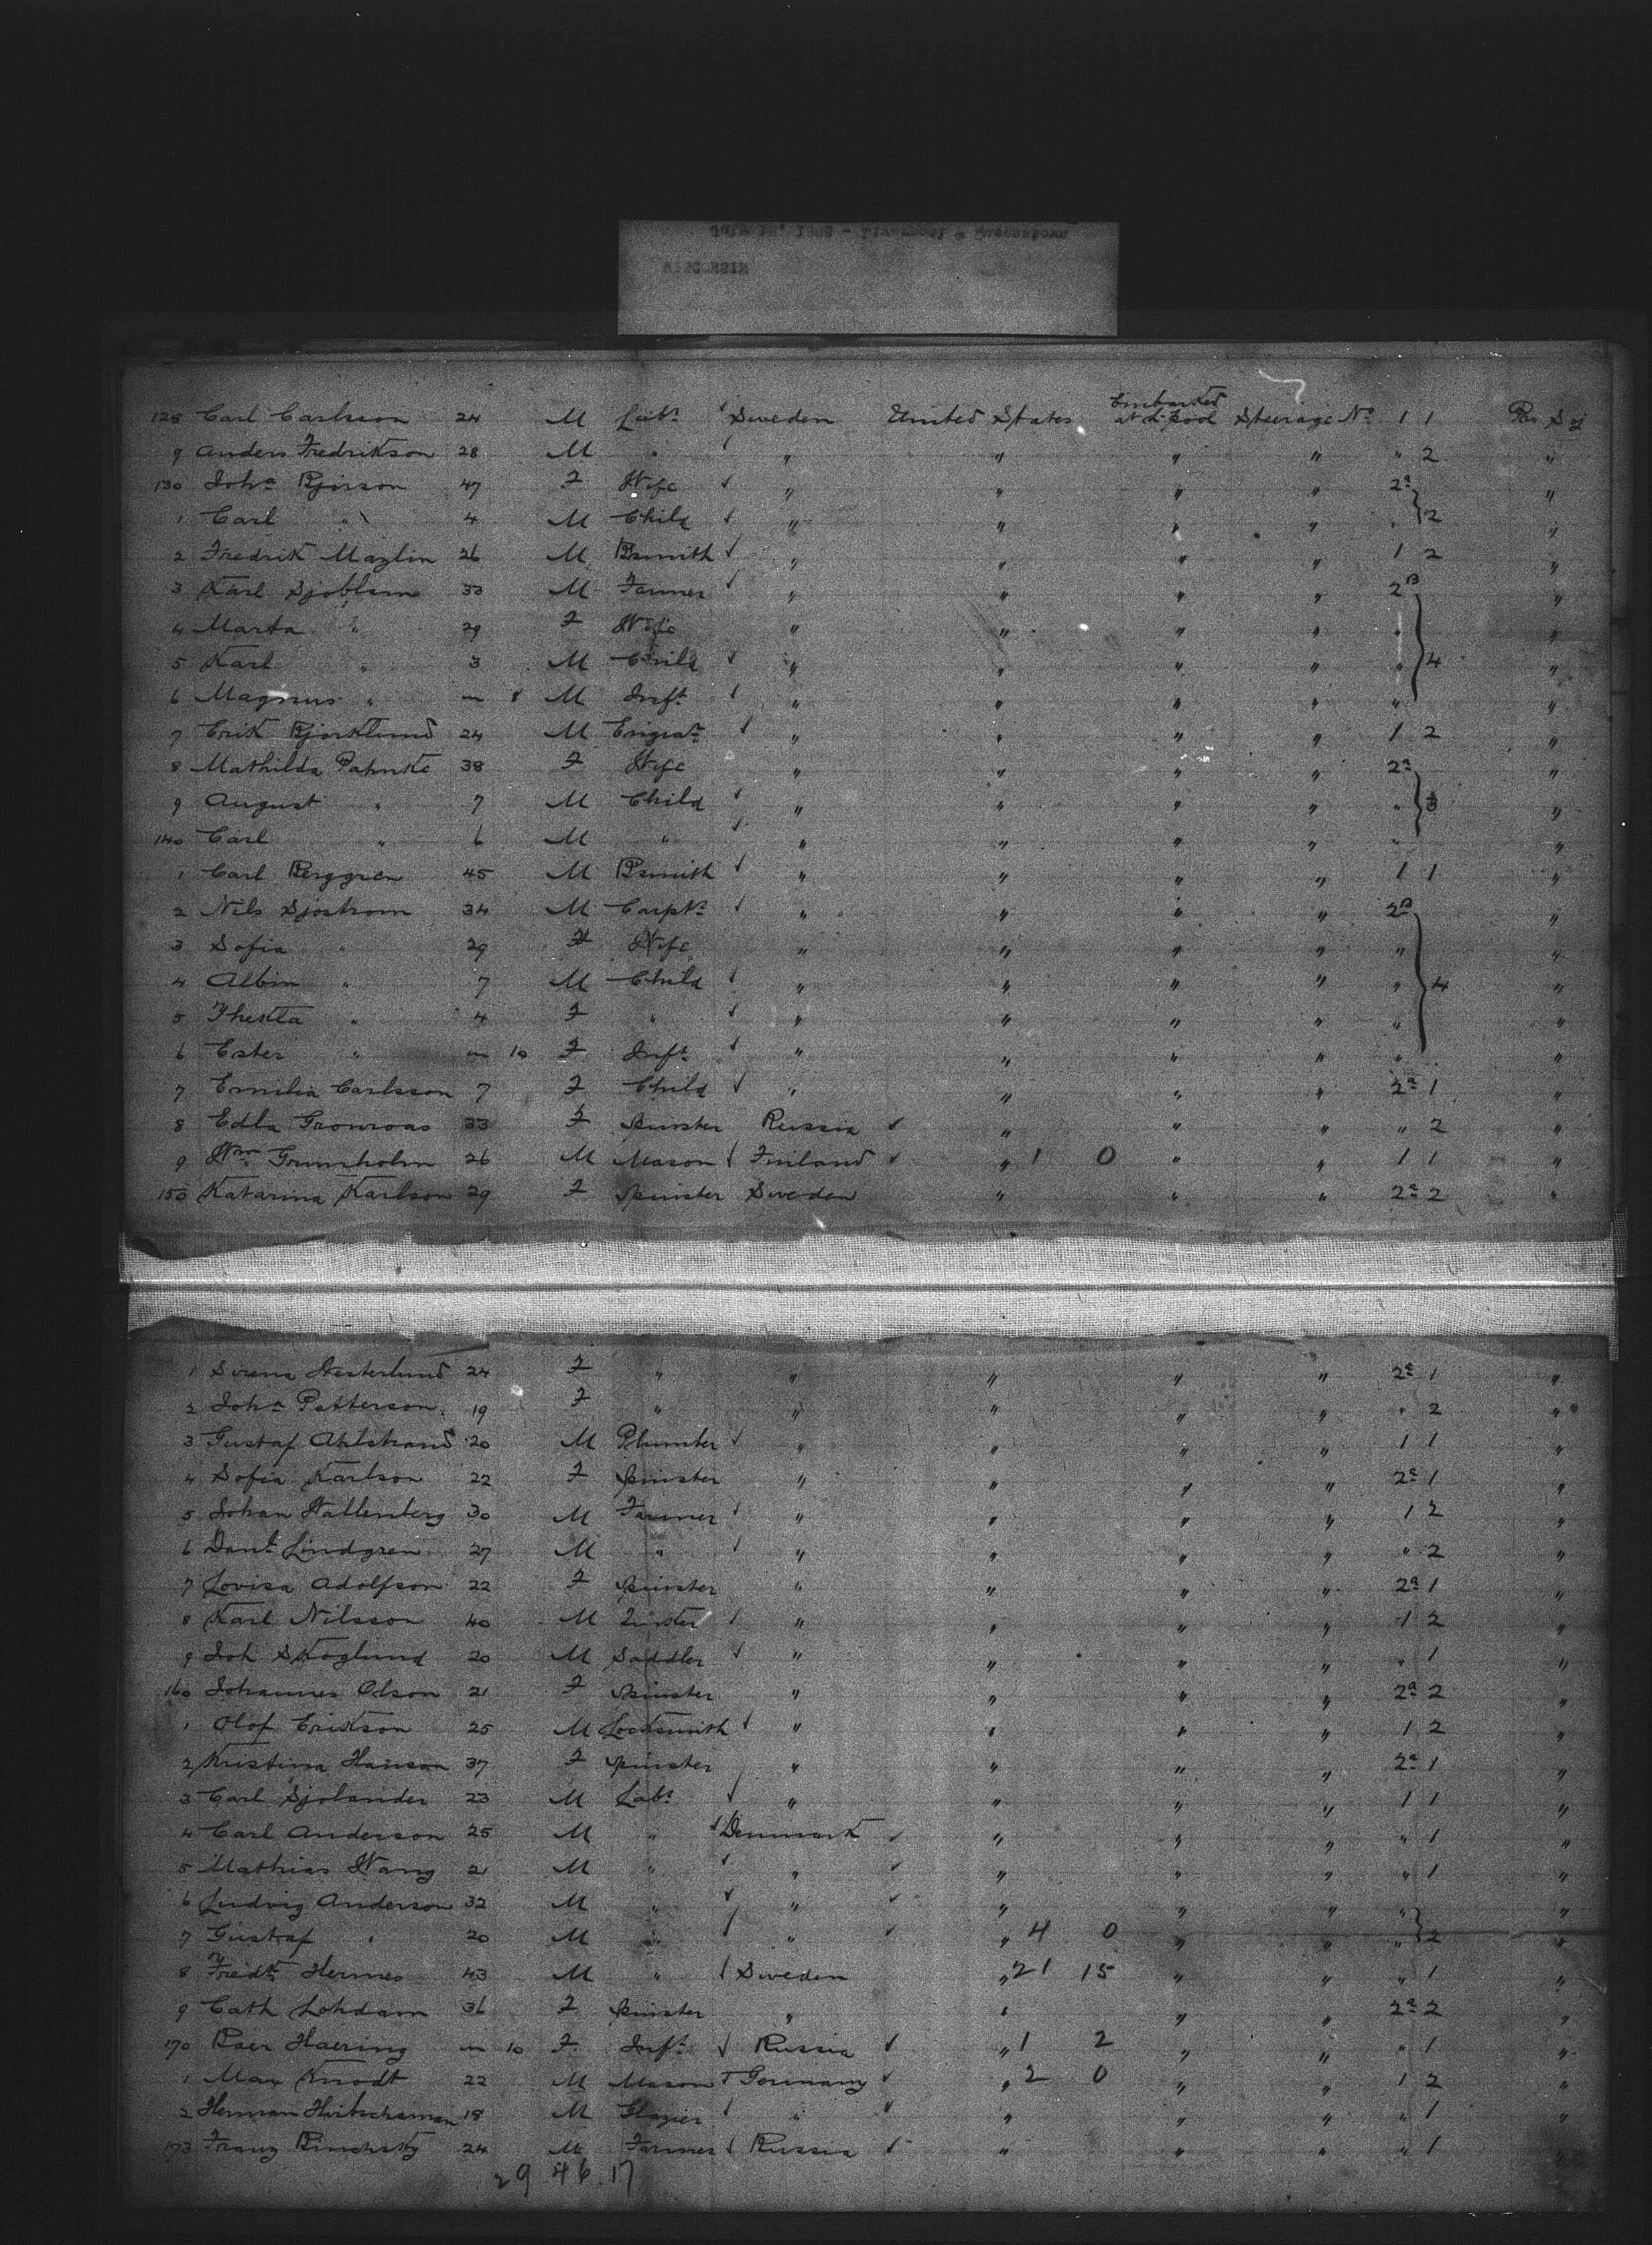 WISCONSIN
Embarked
128 Carl Carlsson 24 M Labr Sweden United States at L'pool Steerage No 1 1
9 Anders Fredrikson 28 M " " " " " " 2 "
130 Joha Bjorson 47 F Wife " " " " 2a "
1 Carl " 4 M Child " " " " " 2 "
2 Fredrik Mazlin 26 M Bsmith " " " " 1 2 "
3 Karl Sjoblom 33 M Farmer " " " " 2B "
4 Marta " 29 F Wife " " " " " "
5 Karl " 3 M Child " " " " " 4 "
6 Magnus " 8 M Inft " " " " " "
7 Erik Bjorklund 24 M " " " " 1 2 "
8 Mathilda Pahnke 38 F Wife " " " " 2a "
9 August " 7 M Child " " " " " 3 "
140 Carl " 6 M " " " " " " "
1 Carl Berggren 45 M Bsmith " " " " 1 1 "
2 Nils Sjostrom 34 M Carptr " " " " 2B "
3 Sofia " 29 F Wife " " " " " "
4 Albin " 7 M Child " " " " " 4 "
5 Thekla " 4 F " " " " " " "
6 Ester " 10 F Inft " " " " " "
7 Emilia Carlsson 7 F Child " " " " 2a 1 "
8 Edla Gronroas 33 F Spinster Russia " " " " 2 "
9 Wm Grunholm 26 M Mason Finland " 1 0 " " 1 1 "
150 Katarina Karlson 29 F Spinster Sweden " " " 2a 2 "
1 Westerlund 24 F " " " " " 2a 1 "
2 Joha Petterson 19 F " " " " " " 2 "
3 Gustaf Ahlstrand 20 M Plumber " " " " 1 1 "
4 Sofia Karlson 22 F Spinster " " " " 2a 1 "
5 Johan Wallenberg 30 M Farmer " " " " 1 2 "
6 Danl Lindgren 27 M " " " " " " 2 "
7 Lovisa Adolfson 22 F Spinster " " " " 2a 1 "
8 Karl Nilsson 40 M " " " " 1 2 "
9 Joh Skoglund 20 M Saddler " " " " " 1 "
160 Johannes Olson 21 F Spinster " " " " 2a 2 "
1 Olof Erikson 25 M Locksmith " " " " 1 2 "
2 Kristina Hanson 37 F Spinster " " " " 2a 1 "
3 Carl Sjolander 23 M Labr " " " " 1 1 "
4 Carl Anderson 25 M " Denmark " " " " 1 "
5 Mathias Wang 21 M " " " " " " 1 "
6 Ludvig Anderson 32 M " " " " " " "
7 Gustaf " 20 M " " " 4 0 " " " 2 "
8 Fredk Hermes 43 M " Sweden " 21 15 " " " 1 "
9 Cath Lohdam 36 F Spinster " " " " 2a 2 "
170 Haering 10 F Inft Russia " 1 2 " " " 1 "
1 Max Knodt 22 M Mason Germany " 2 0 " " 1 2 "
2 Herman 18 M Glazier " " " " " 1 "
173 Franz 24 M Farmer Russia " " " " 1
29 46 17